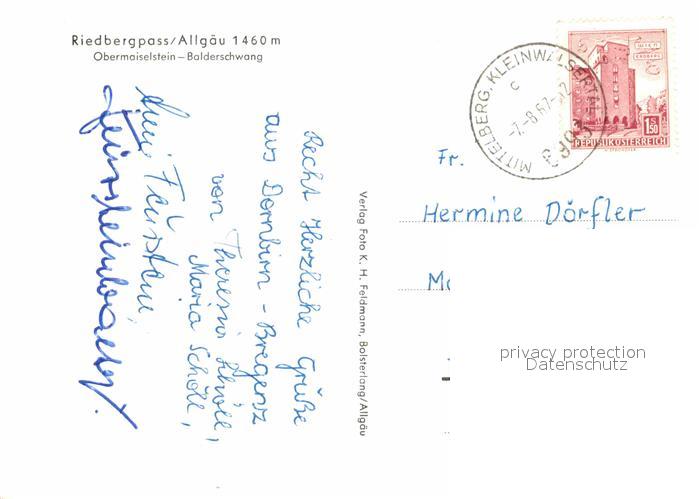 Riedbergpass/Allgäu 1460 m
Obermaiselstein – Balderschwang
Recht Herzliche Grüße
aus Dornbirn – Bregenz
von Theresia Scholl,
Maria Scholl,
Verlag Foto K. H. Feldmann, Bolsterlang/Allgäu
MITTELBERG, KLEINWALSERTAL
c
-7.-8.67-12
WIEN
ERDBERG
1 50
REPUBLIK ÖSTERREICH
Fr.
Hermine Dörfler
privacy protection
Datenschutz